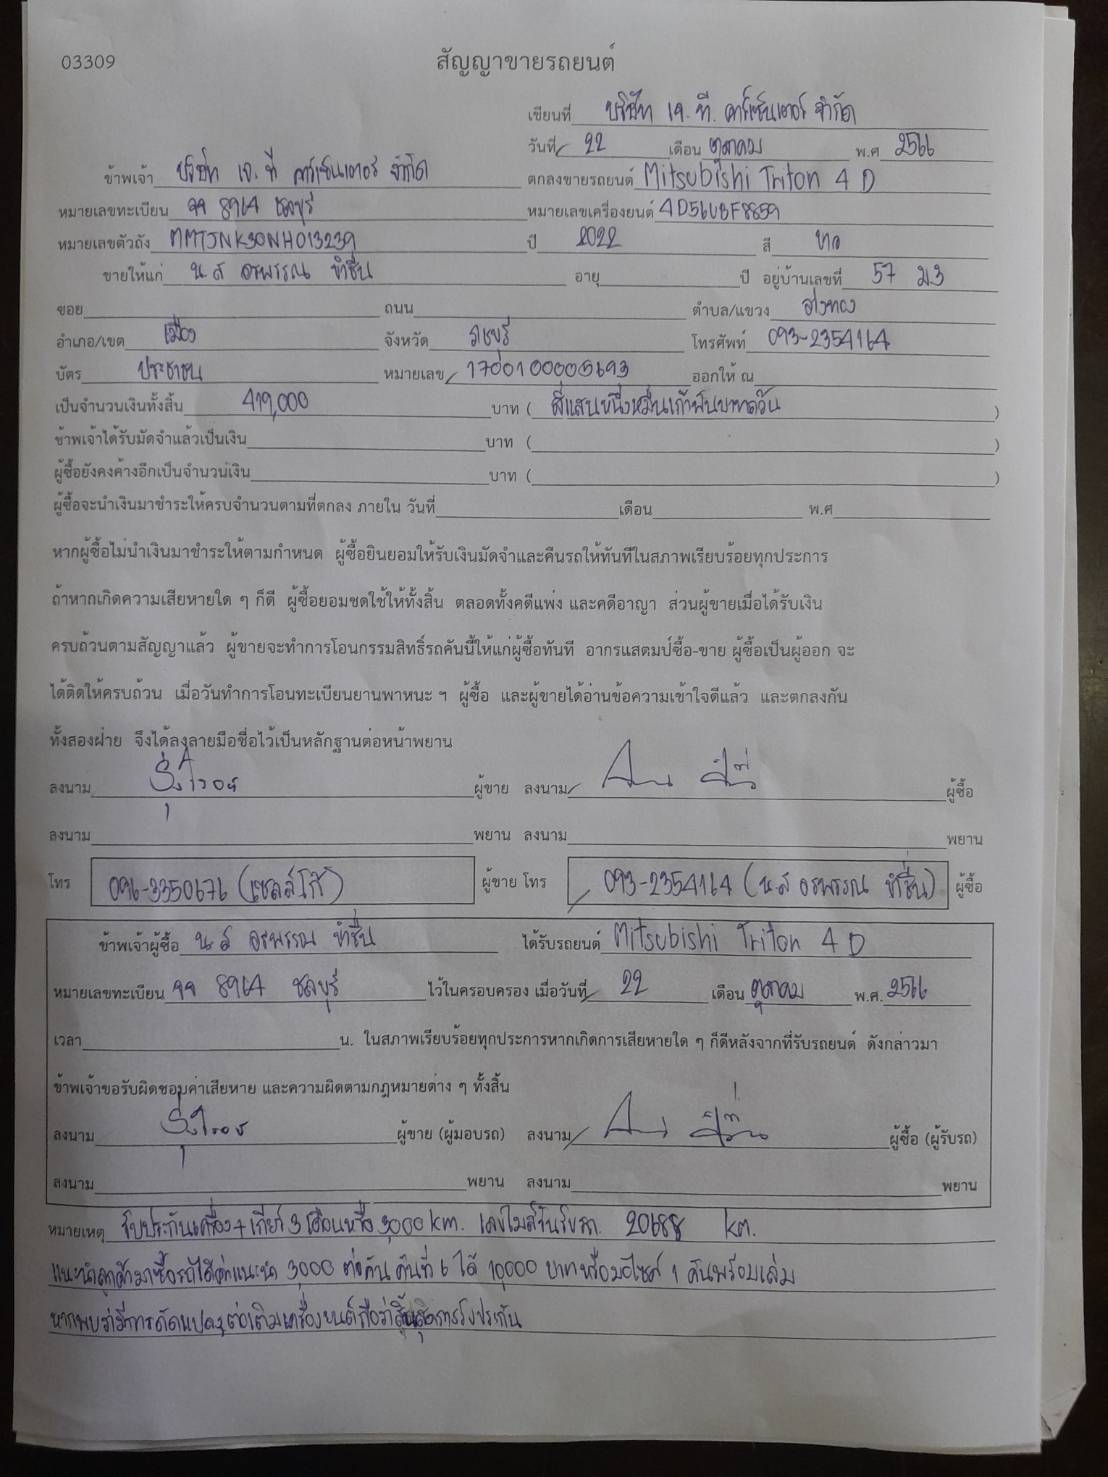 03309
สัญญาขายรถยนต์
เขียนที่ บริษัท เจ. ที. คาร์เซ็นเตอร์ จำกัด
วันที่ 22 เดือน ตุลาคม พ.ศ 2566
ข้าพเจ้า บริษัท เจ. ที คาร์เซ็นเตอร์ จำกัด ตกลงขายรถยนต์ Mitsubishi Triton 4 D
หมายเลขทะเบียน 8964 ชลบุรี หมายเลขเครื่องยนต์ 4D56UBF8859
หมายเลขตัวถัง MMTJNK30NH013239 ปี 2022 สี เทา
ขายให้แก่ น.ส อรพรรณ ขำชื่น อายุ ปี อยู่บ้านเลขที่ 57 ม.3
ซอย ถนน ตำบล/แขวง อ่างทอง
อำเภอ/เขต เมือง จังหวัด ราชบุรี โทรศัพท์ 093-2354164
บัตร ประชาชน หมายเลข 1700100005693 ออกให้ ณ
เป็นจำนวนเงินทั้งสิ้น 419,000 บาท ( สี่แสนหนึ่งหมื่นเก้าพันบาทถ้วน )
ข้าพเจ้าได้รับมัดจำแล้วเป็นเงิน บาท ( )
ผู้ซื้อยังคงค้างอีกเป็นจำนวนเงิน บาท ( )
ผู้ซื้อจะนำเงินมาชำระให้ครบจำนวนตามที่ตกลง ภายใน วันที่ เดือน พ.ศ
หากผู้ซื้อไม่นำเงินมาชำระให้ตามกำหนด ผู้ซื้อยินยอมให้รับเงินมัดจำและคืนรถให้ทันทีในสภาพเรียบร้อยทุกประการ
ถ้าหากเกิดความเสียหายใด ๆ ก็ดี ผู้ซื้อยอมชดใช้ให้ทั้งสิ้น ตลอดทั้งคดีแพ่ง และคดีอาญา ส่วนผู้ขายเมื่อได้รับเงิน
ครบถ้วนตามสัญญาแล้ว ผู้ขายจะทำการโอนกรรมสิทธิ์รถคันนี้ให้แก่ผู้ซื้อทันที อากรแสตมป์ซื้อ-ขาย ผู้ซื้อเป็นผู้ออก จะ
ได้ติดให้ครบถ้วน เมื่อวันทำการโอนทะเบียนยานพาหนะ ฯ ผู้ซื้อ และผู้ขายได้อ่านข้อความเข้าใจดีแล้ว และตกลงกัน
ทั้งสองฝ่าย จึงได้ลงลายมือชื่อไว้เป็นหลักฐานต่อหน้าพยาน
ลงนาม ผู้ขาย ลงนาม ผู้ซื้อ
ลงนาม พยาน ลงนาม พยาน
โทร 096-3350676 (เซลล์โก้) ผู้ขาย โทร 093-2354164 (น.ส อรพรรณ ขำชื่น) ผู้ซื้อ
ข้าพเจ้าผู้ซื้อ น.ส อรพรรณ ขำชื่น ได้รับรถยนต์ Mitsubishi Triton 4 D
หมายเลขทะเบียน 8964 ชลบุรี ไว้ในครอบครอง เมื่อวันที่ 22 เดือน ตุลาคม พ.ศ. 2566
เวลา น. ในสภาพเรียบร้อยทุกประการหากเกิดการเสียหายใด ๆ ก็ดีหลังจากที่รับรถยนต์ ดังกล่าวมา
ข้าพเจ้าขอรับผิดชอบค่าเสียหาย และความผิดตามกฎหมายต่าง ๆ ทั้งสิ้น
ลงนาม ผู้ขาย (ผู้มอบรถ) ลงนาม ผู้ซื้อ (ผู้รับรถ)
ลงนาม พยาน ลงนาม พยาน
หมายเหตุ รับประกันเครื่อง+เกียร์ 3 เดือนหรือ 3,000 km. เลขไมล์วันรับรถ 20688 km.
แนะนำลูกค้ามาซื้อรถได้ค่าแนะนำ 3,000 ต่อคัน คันที่ 6 ได้ 10,000 บาทหรือมอไซค์ 1 คันพร้อมเล่ม
หากพบว่ามีการดัดแปลงต่อเติมเครื่องยนต์ถือว่าสิ้นสุดการรับประกัน